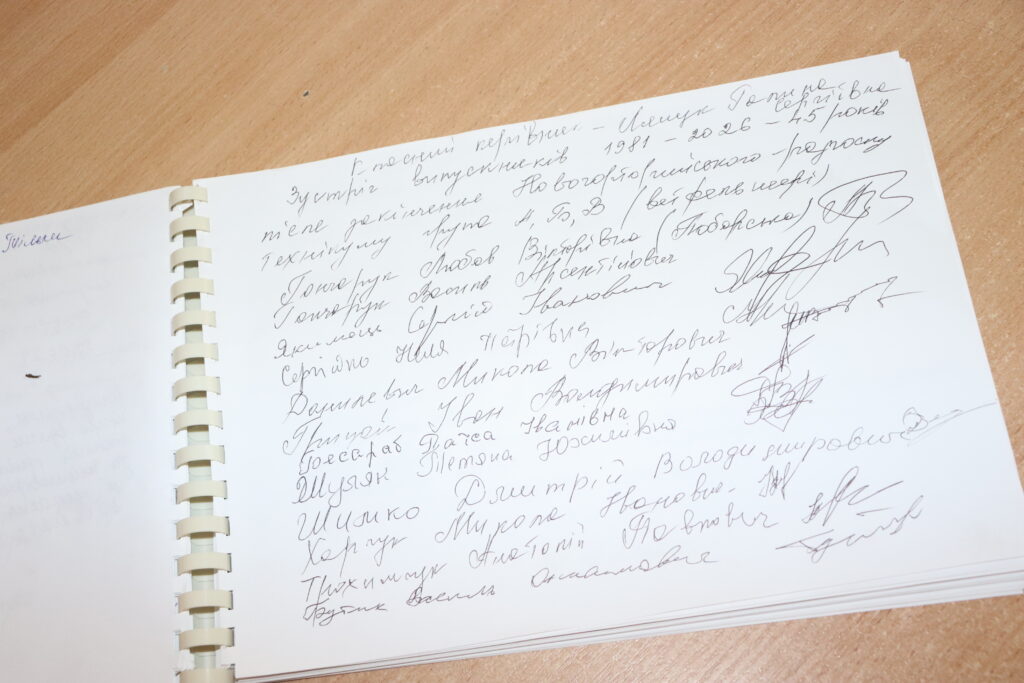 класний керівник – Лящук Галина Сергіївна
Зустріч випускників 1981 – 2026 – 45 років
після закінчення Новочорторийського – радгоспу
Технікуму група А, Б, В (ветфельшері)
Гончарук Любов Вікторівна (Любарська)
Гончарук Василь Арсентійович
Якимець Сергій Іванович
Сергійко Неля Петрівна
Данилевич Микола Вікторович
Грицай Іван Володимирович
Бесараб Раїса Іванівна
Шуляк Тетяна Юхимівна
Шимко Дмитрій Володимирович
Харчук Микола Іванович
Трохимчук Анатолій Павлович
Василь